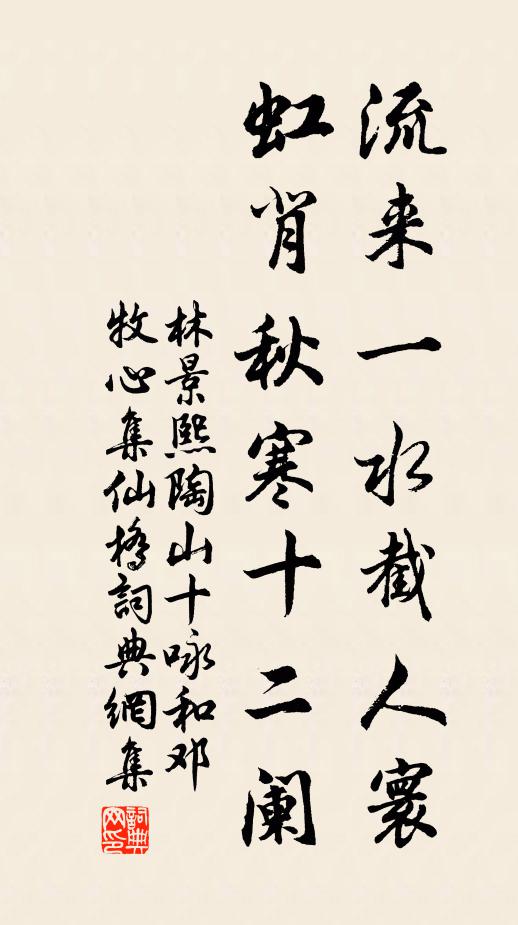 流来一水截人寰
虹背秋寒十二阑
林景熙陶山十咏和邓
牧心集仙橋詞典網集
詞典网印